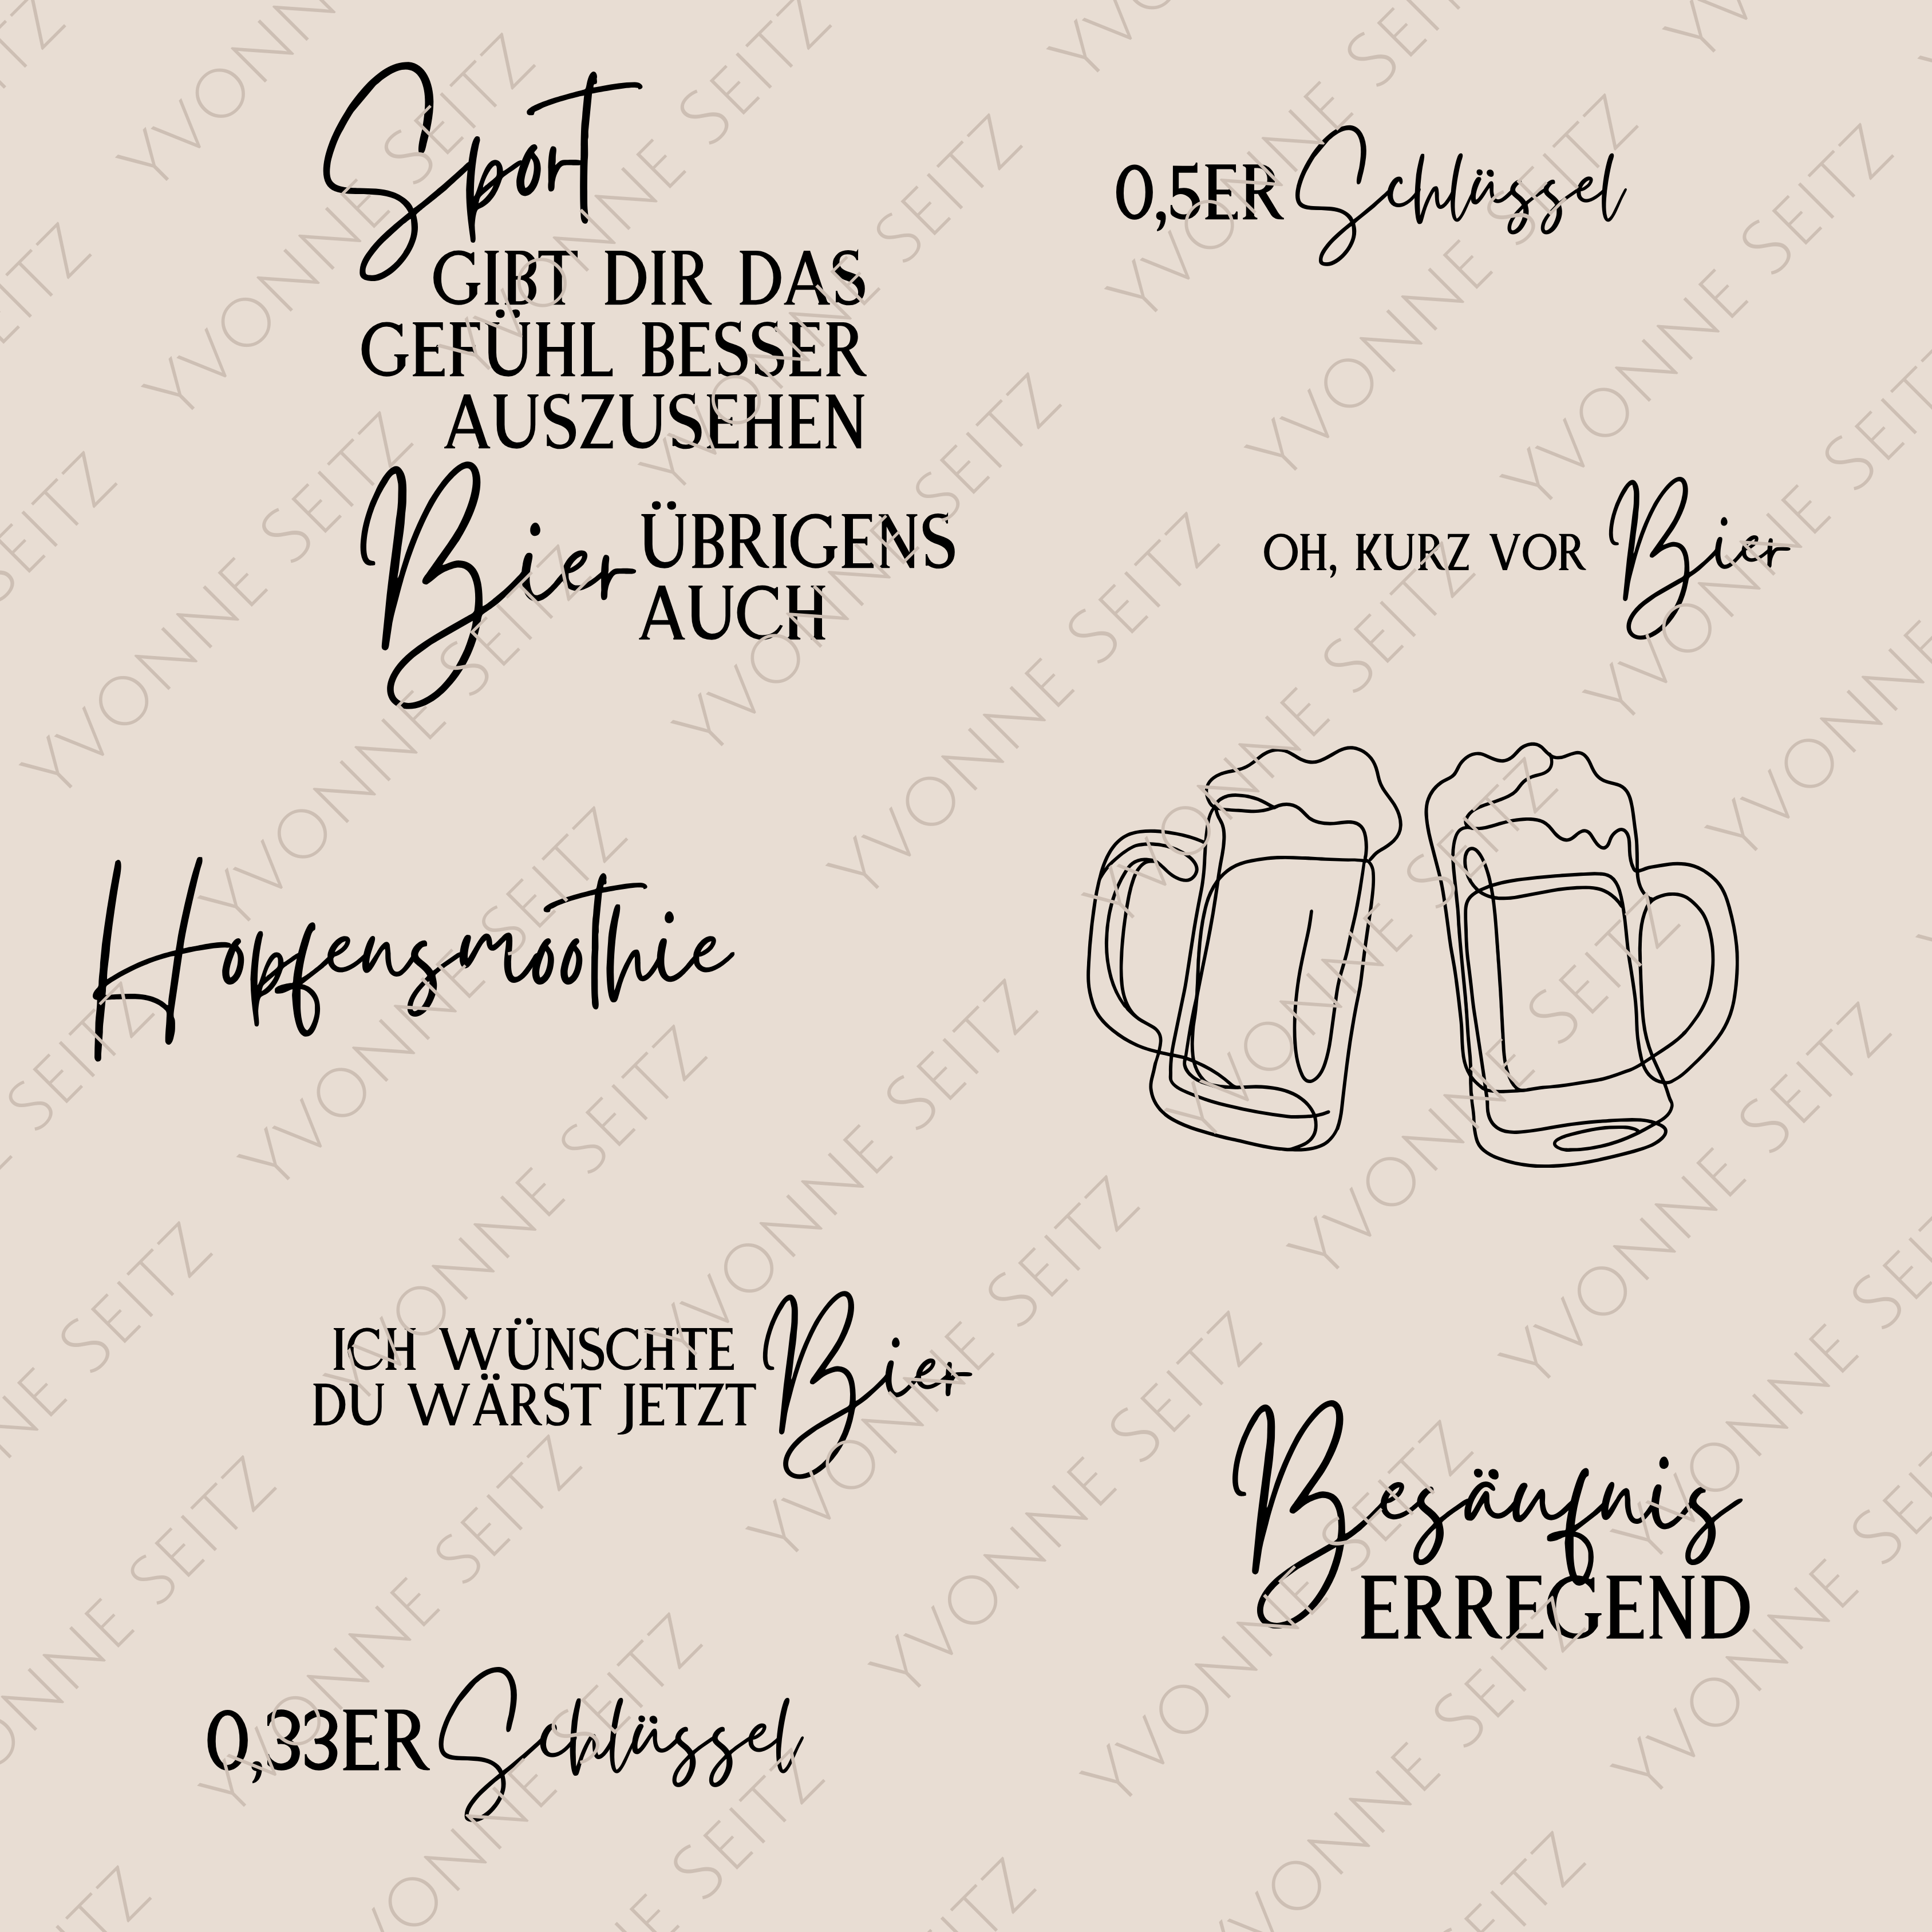 Sport
GIBT DIR DAS
GEFÜHL BESSER
AUSZUSEHEN
Bier ÜBRIGENS
AUCH
0,5ER Schlüssel
OH, KURZ VOR Bier
Hopfensmoothie
ICH WÜNSCHTE
DU WÄRST JETZT Bier
Besäufnis
ERREGEND
0,33ER Schlüssel
YVONNE SEITZ